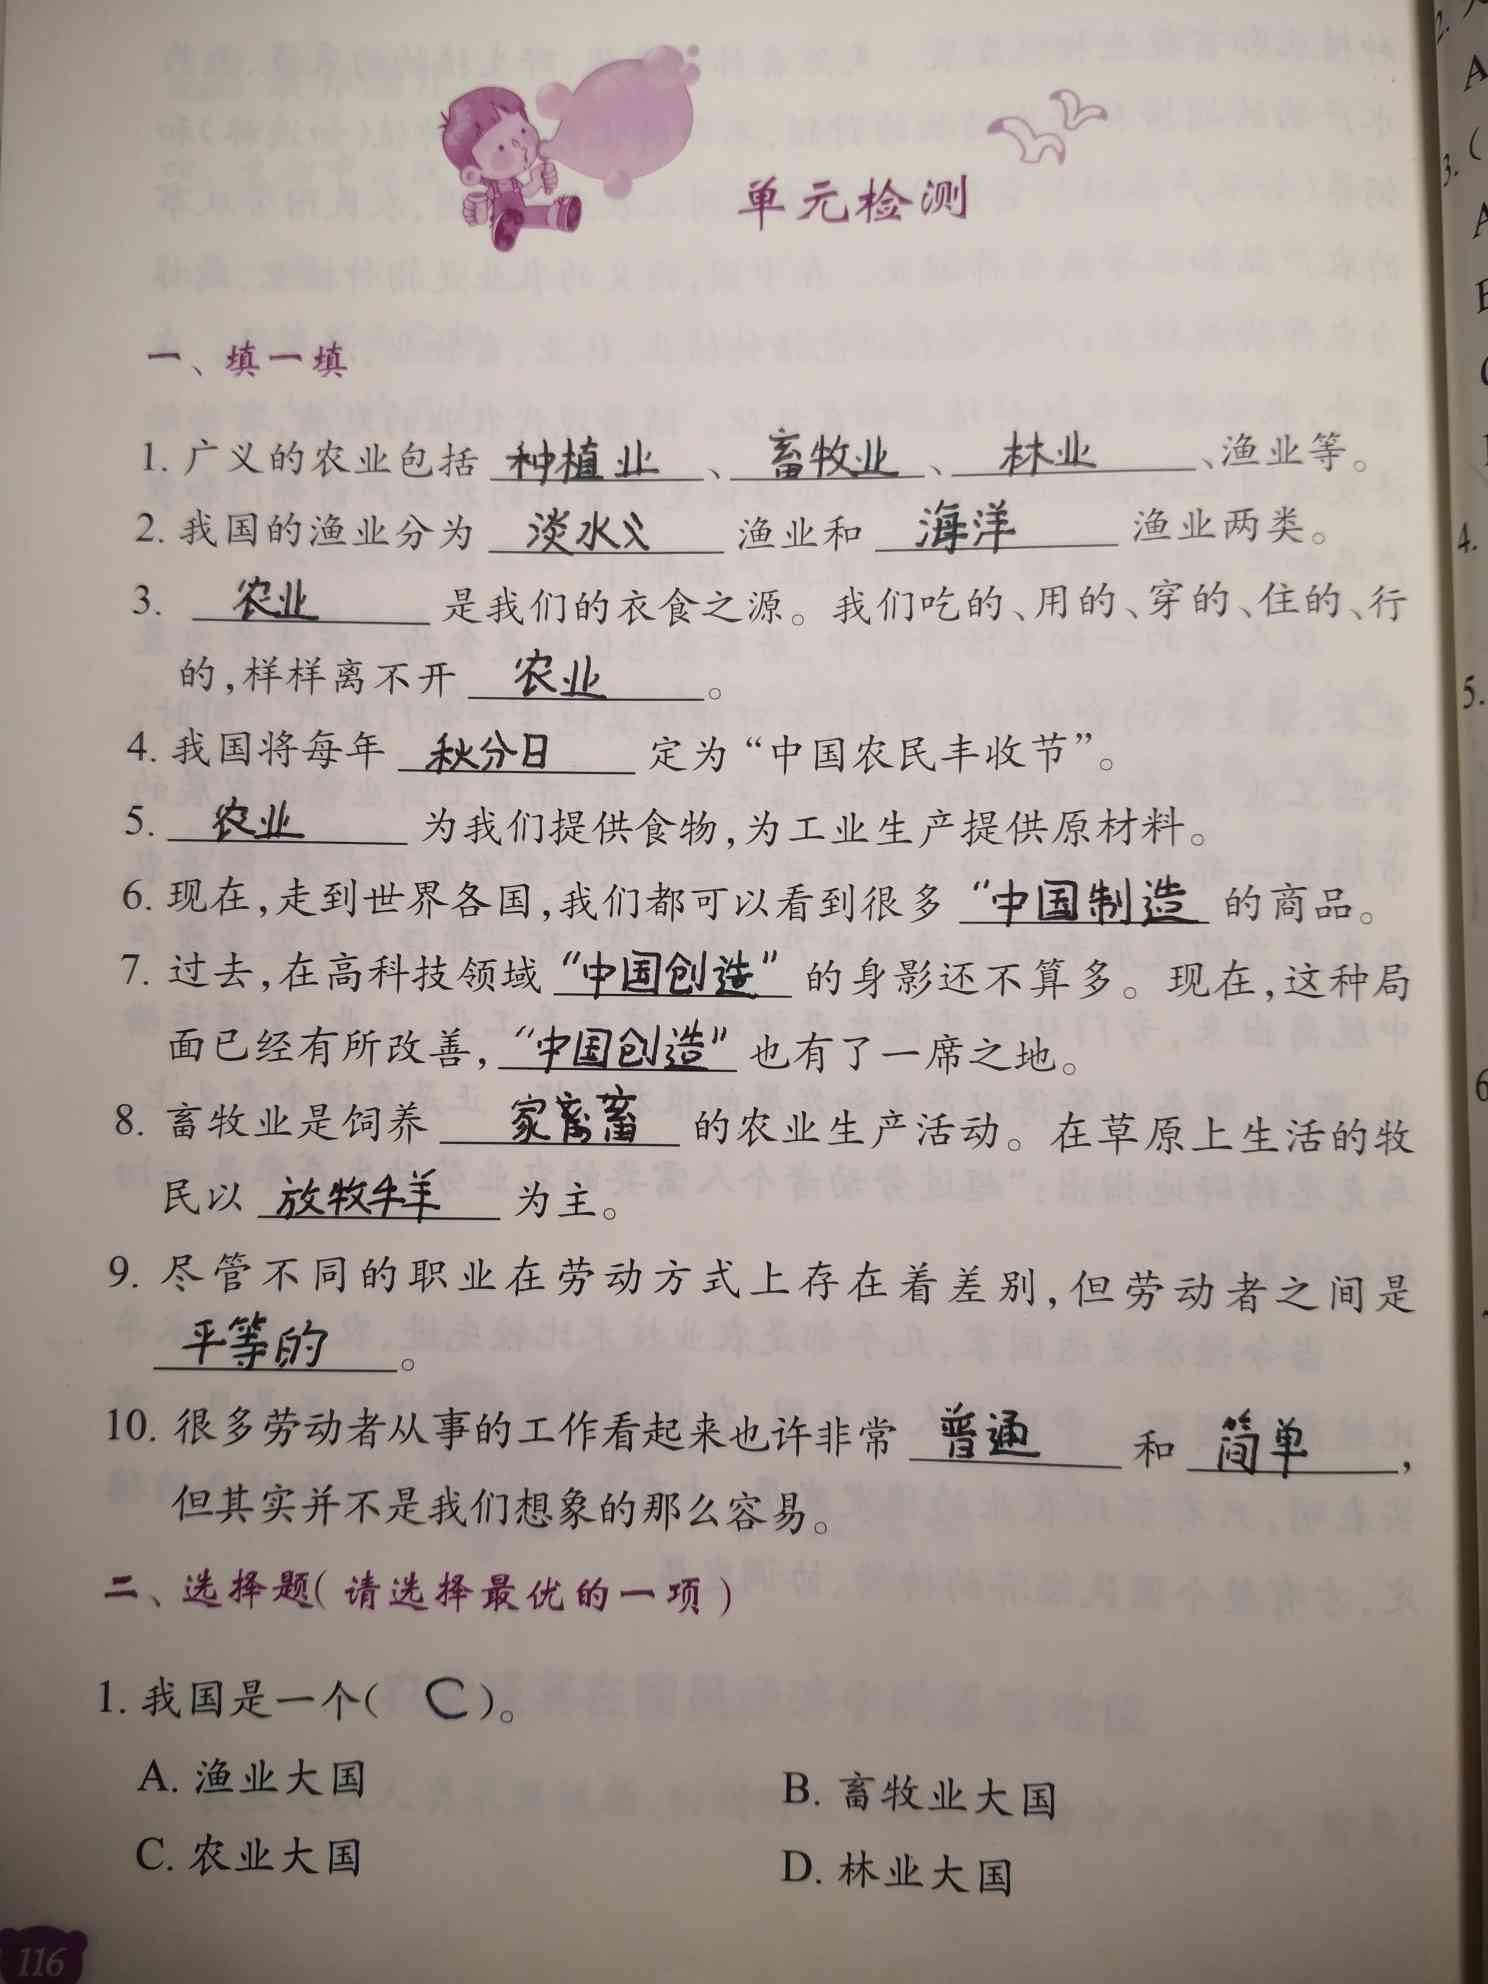 单元检测
一、填一填
1. 广义的农业包括 种植业 、 畜牧业 、 林业 、渔业等。
2. 我国的渔业分为 淡水 渔业和 海洋 渔业两类。
3. 农业 是我们的衣食之源。我们吃的、用的、穿的、住的、行
的,样样离不开 农业 。
4. 我国将每年 秋分日 定为“中国农民丰收节”。
5. 农业 为我们提供食物,为工业生产提供原材料。
6. 现在,走到世界各国,我们都可以看到很多 “中国制造 的商品。
7. 过去,在高科技领域 “中国创造” 的身影还不算多。现在,这种局
面已经有所改善, “中国创造” 也有了一席之地。
8. 畜牧业是饲养 家畜 的农业生产活动。在草原上生活的牧
民以 放牧牛羊 为主。
9. 尽管不同的职业在劳动方式上存在着差别,但劳动者之间是
平等的 。
10. 很多劳动者从事的工作看起来也许非常 普通 和 简单 ,
但其实并不是我们想象的那么容易。
二、选择题(请选择最优的一项)
1. 我国是一个( C )。
A. 渔业大国 B. 畜牧业大国
C. 农业大国 D. 林业大国
116
2.
A
3. (
A
4.
5.
6